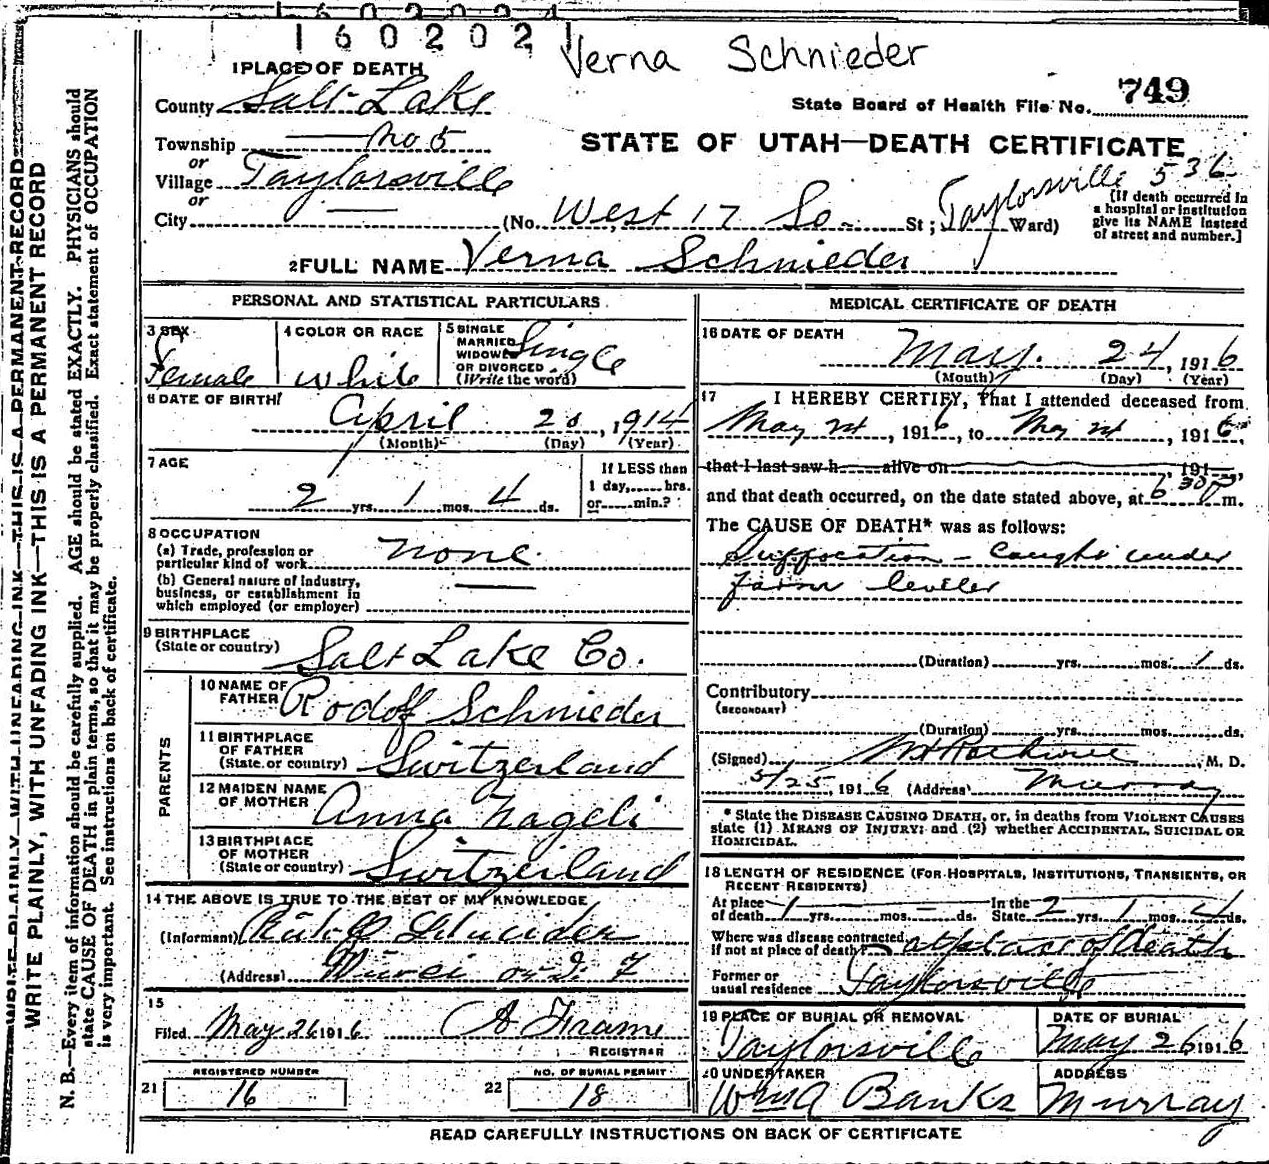 1602021
Verna Schnieder
1 PLACE OF DEATH
County Salt Lake
State Board of Health File No. 749
Township No 5
STATE OF UTAH—DEATH CERTIFICATE
or
Village Taylorsville
or
City — (No. West 17 So. St; Taylorsville 536 Ward)
[If death occurred in a hospital or institution give its NAME instead of street and number.]
2 FULL NAME Verna Schnieder
PERSONAL AND STATISTICAL PARTICULARS
3 SEX Female
4 COLOR OR RACE White
5 SINGLE MARRIED WIDOWED OR DIVORCED (Write the word) Single
6 DATE OF BIRTH April 20, 1914
(Month) (Day) (Year)
7 AGE 2 yrs. 1 mos. 4 ds.
If LESS than 1 day,.....hrs. or.....min.?
8 OCCUPATION
(a) Trade, profession or particular kind of work None
(b) General nature of industry, business, or establishment in which employed (or employer) —
9 BIRTHPLACE (State or country) Salt Lake Co.
PARENTS
10 NAME OF FATHER Rodolf Schnieder
11 BIRTHPLACE OF FATHER (State or country) Switzerland
12 MAIDEN NAME OF MOTHER Anna Nageli
13 BIRTHPLACE OF MOTHER (State or country) Switzerland
14 THE ABOVE IS TRUE TO THE BEST OF MY KNOWLEDGE
(Informant)
(Address)
15
Filed May 26 1916 A Frame
REGISTRAR
21 REGISTERED NUMBER 16
22 NO. OF BURIAL PERMIT 18
MEDICAL CERTIFICATE OF DEATH
16 DATE OF DEATH
May 24, 1916
(Month) (Day) (Year)
17 I HEREBY CERTIFY, That I attended deceased from
May, 1916, to May, 1916,
that I last saw h alive on, 191,
and that death occurred, on the date stated above, at 6 30 P m.
The CAUSE OF DEATH* was as follows:
Suffocation – Caught under
farm leveler
(Duration) yrs. mos. 1 ds.
Contributory
(SECONDARY)
(Duration) yrs. mos. ds.
(Signed), M. D.
5/25, 1916 (Address) Murray
* State the DISEASE CAUSING DEATH, or, in deaths from VIOLENT CAUSES state (1) MEANS OF INJURY; and (2) whether ACCIDENTAL, SUICIDAL OR HOMICIDAL.
18 LENGTH OF RESIDENCE (FOR HOSPITALS, INSTITUTIONS, TRANSIENTS, OR RECENT RESIDENTS)
At place of death 1 yrs. – mos. – ds. In the State 2 yrs. 1 mos. 4 ds.
Where was disease contracted, If not at place of death? at place of death
Former or usual residence Taylorsville
19 PLACE OF BURIAL OR REMOVAL Taylorsville
DATE OF BURIAL May 26 1916
20 UNDERTAKER Wm A Banks
ADDRESS Murray
READ CAREFULLY INSTRUCTIONS ON BACK OF CERTIFICATE
WRITE PLAINLY, WITH UNFADING INK—THIS IS A PERMANENT RECORD
N. B.—Every item of information should be carefully supplied. AGE should be stated EXACTLY. PHYSICIANS should
state CAUSE OF DEATH in plain terms, so that it may be properly classified. Exact statement of OCCUPATION
is very important. See instructions on back of certificate.